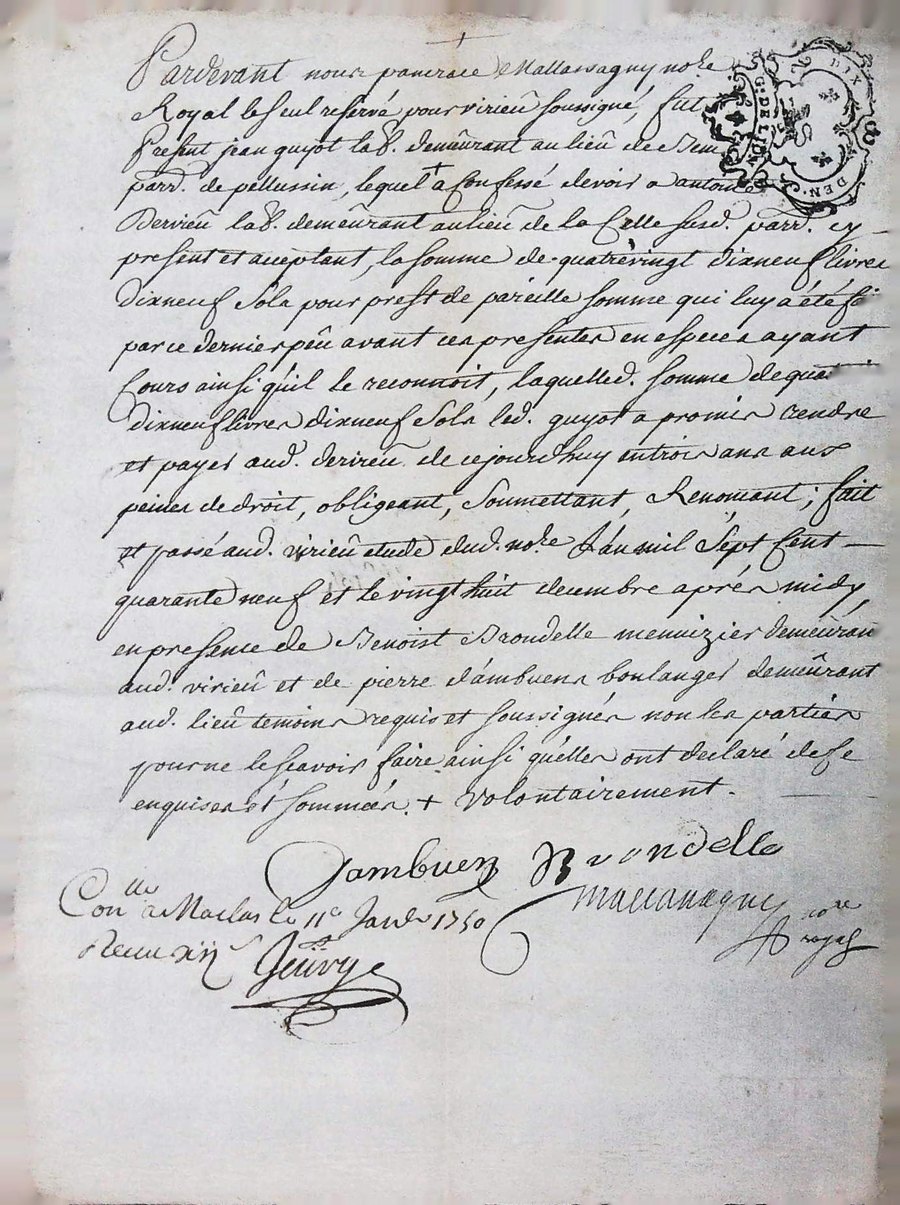 +
Pardevant nous pancrace Mallassagny no.re
Royal le seul reservé pour virieu soussigné, fut
Present jean guyot lab.r demeurant au lieu de
parr. de pellussin, lequel + a confessé devoir a antoine
Derieu lab.r demeurant au lieu de la Celle susd. parr. cy
present et aceptant, la somme de quatrevingt dixneuf livres
dixneuf sols pour prest de pareille somme qui luy a été
par ce dernier peu avant ces presentes en especes ayant
Cours ainsi quil le reconnoit, laquelled. somme de
dixneuf livres dixneuf sols led. guyot a promis rendre
et payer aud. derieu de ce jourdhuy en trois ans aux
peines de droit, obligeant, soumettant, Renonçant; fait
et passé aud. virieu etude dud. no.re L'an mil sept cent
quarante neuf et le vingt huit decembre aprés midy
en presence de Benoist Brondelle menuizier demeuran
aud. virieu et de pierre dambuens boulanger demeurant
aud. lieu temoins requis et soussignés non les parties
pour ne le sçavoir faire ainsi quelles ont declaré de ce
enquises et sommées. + volontairement.
Dambuens Brondelle
Con.lle a Maclas le 11e Janv. 1750
Recu xii s
no.re royal
G. DE LION
DIX DEN.